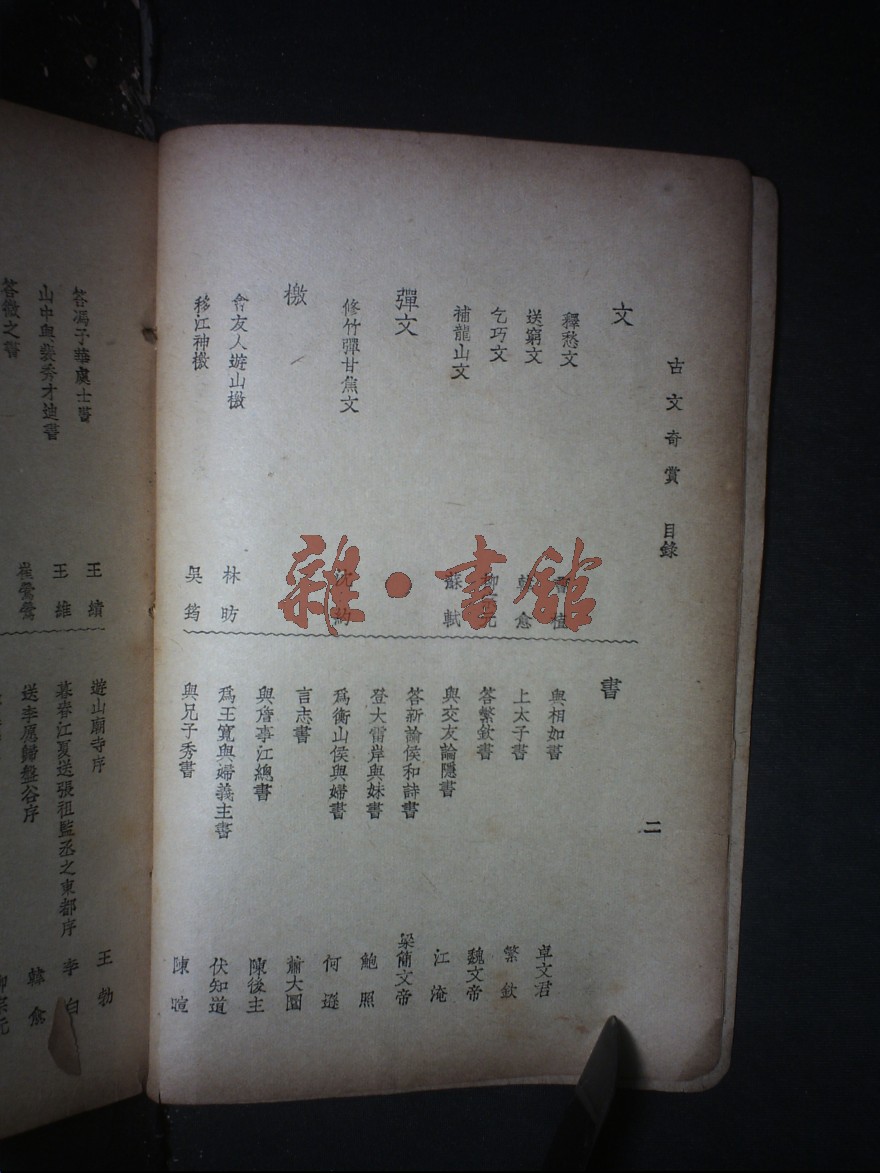 古文奇賞 目錄
二
文
釋愁文
曹植
送窮文
韓愈
乞巧文
柳宗元
補龍山文
蘇軾
彈文
修竹彈甘蕉文
沈約
檄
會友人遊山檄
林昉
移江神檄
吳筠
書
與相如書
卓文君
上太子書
繁欽
答繁欽書
魏文帝
與交友論隱書
江淹
答新諭侯和詩書
梁簡文帝
登大雷岸與妹書
鮑照
爲衡山侯與婦書
何遜
言志書
蕭大圜
與詹事江總書
陳後主
爲王寬與婦義主書
伏知道
與兄子秀書
陳暄
答馮子華處士書
王績
山中與裴秀才迪書
王維
答微之書
崔鶯鶯
遊山廟寺序
王勃
暮春江夏送張祖監丞之東都序
李白
送李愿歸盤谷序
韓愈
柳宗元
雜·書館